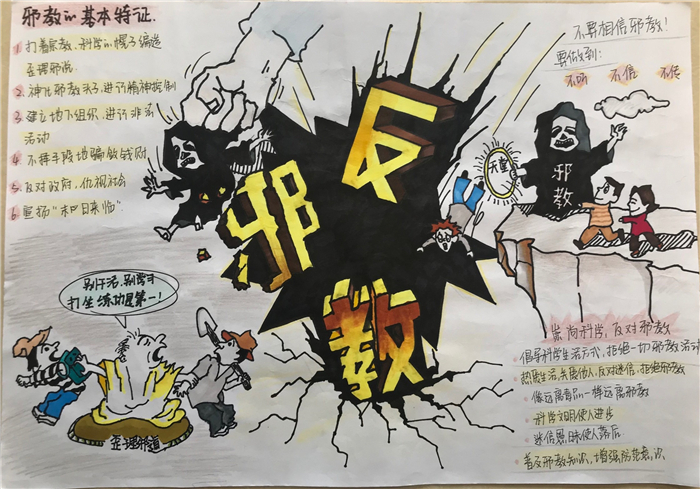 邪教的基本特证.
1 打着宗教、科学的幌子编造
歪理邪说
2 神化邪教头子,进行精神控制
3 建立地下组织,进行非法
活动
4 不择手段地骗敛钱财
5 反对政府,仇视社会
6 宣扬“末日来临”
反
邪
教
不要相信邪教!
要做到:
不听 不信 不传
天堂
邪
教
别干活,别学习
打坐练功是第一!
歪理邪道
崇尚科学,反对邪教
倡导科学生活方式,拒绝一切邪教活动
热爱生活,关爱他人,反对迷信,拒绝邪教
像远离毒品一样远离邪教
科学文明使人进步
迷信愚昧使人落后
普及邪教知识,增强防范意识